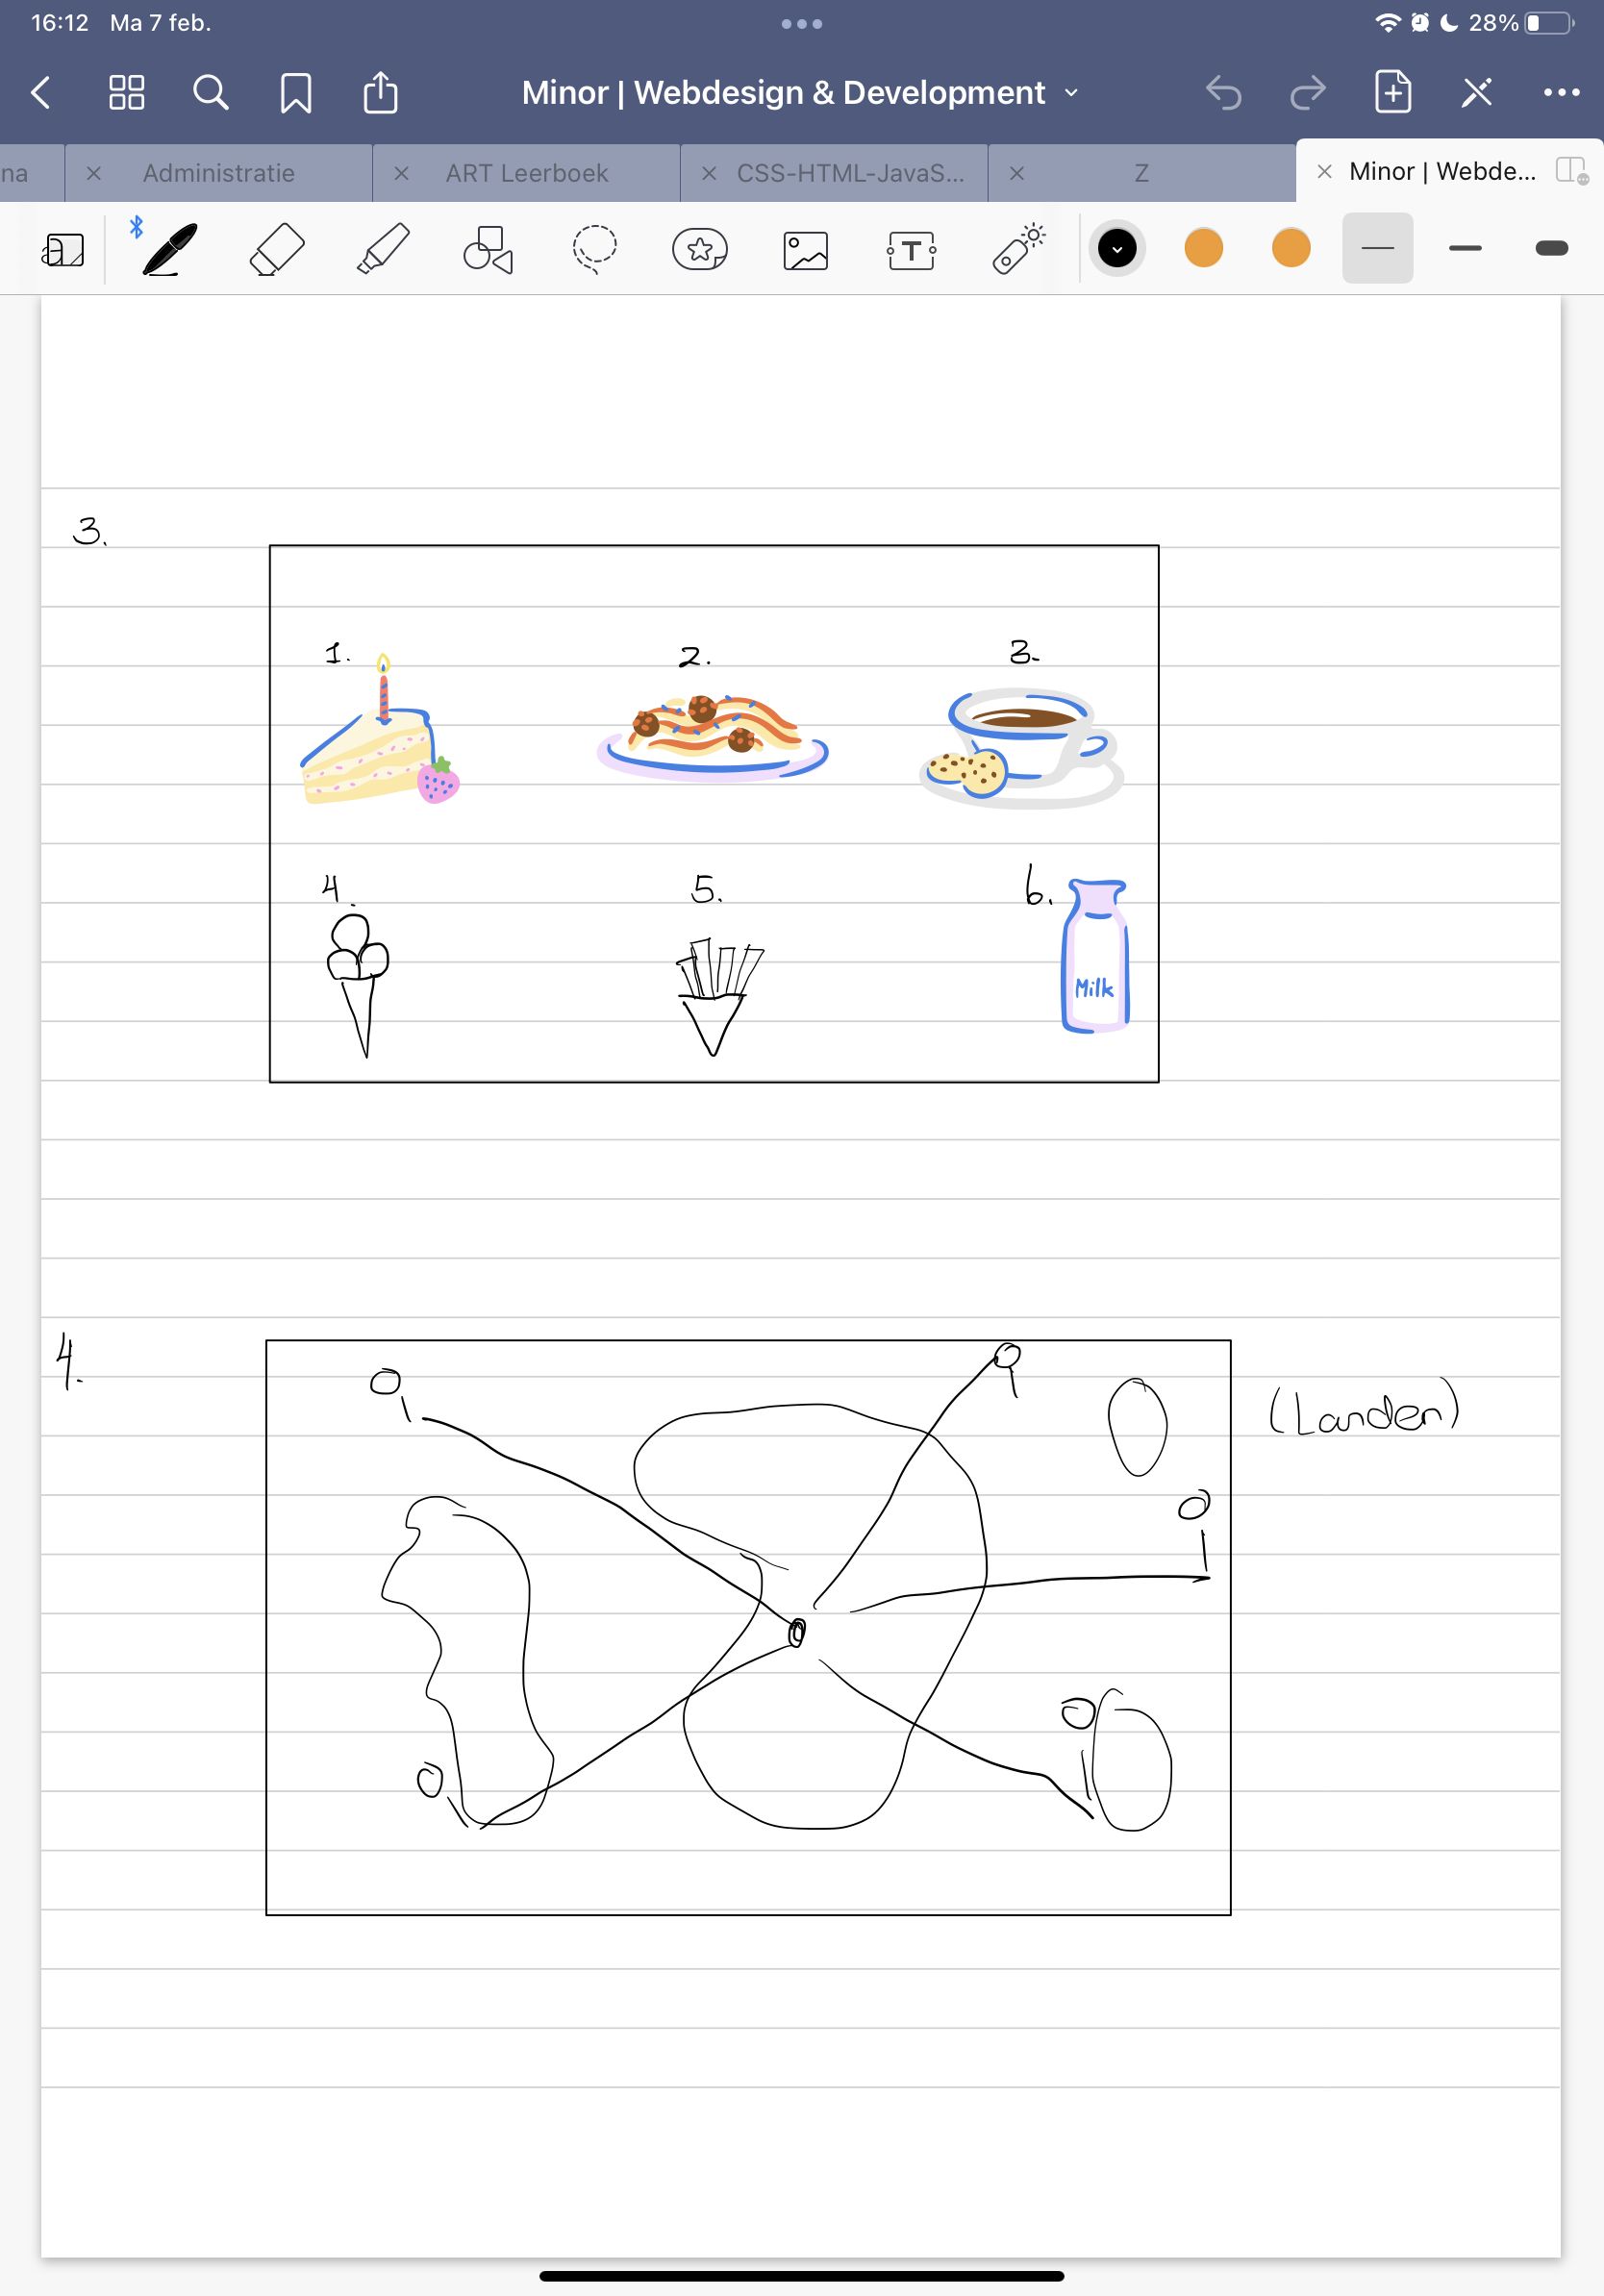 16:12 Ma 7 feb.
28%
Minor | Webdesign & Development
na
Administratie
ART Leerboek
CSS-HTML-JavaS...
Z
Minor | Webde...
T
3.
1.
2.
3.
4.
5.
6.
Milk
4.
(Landen)